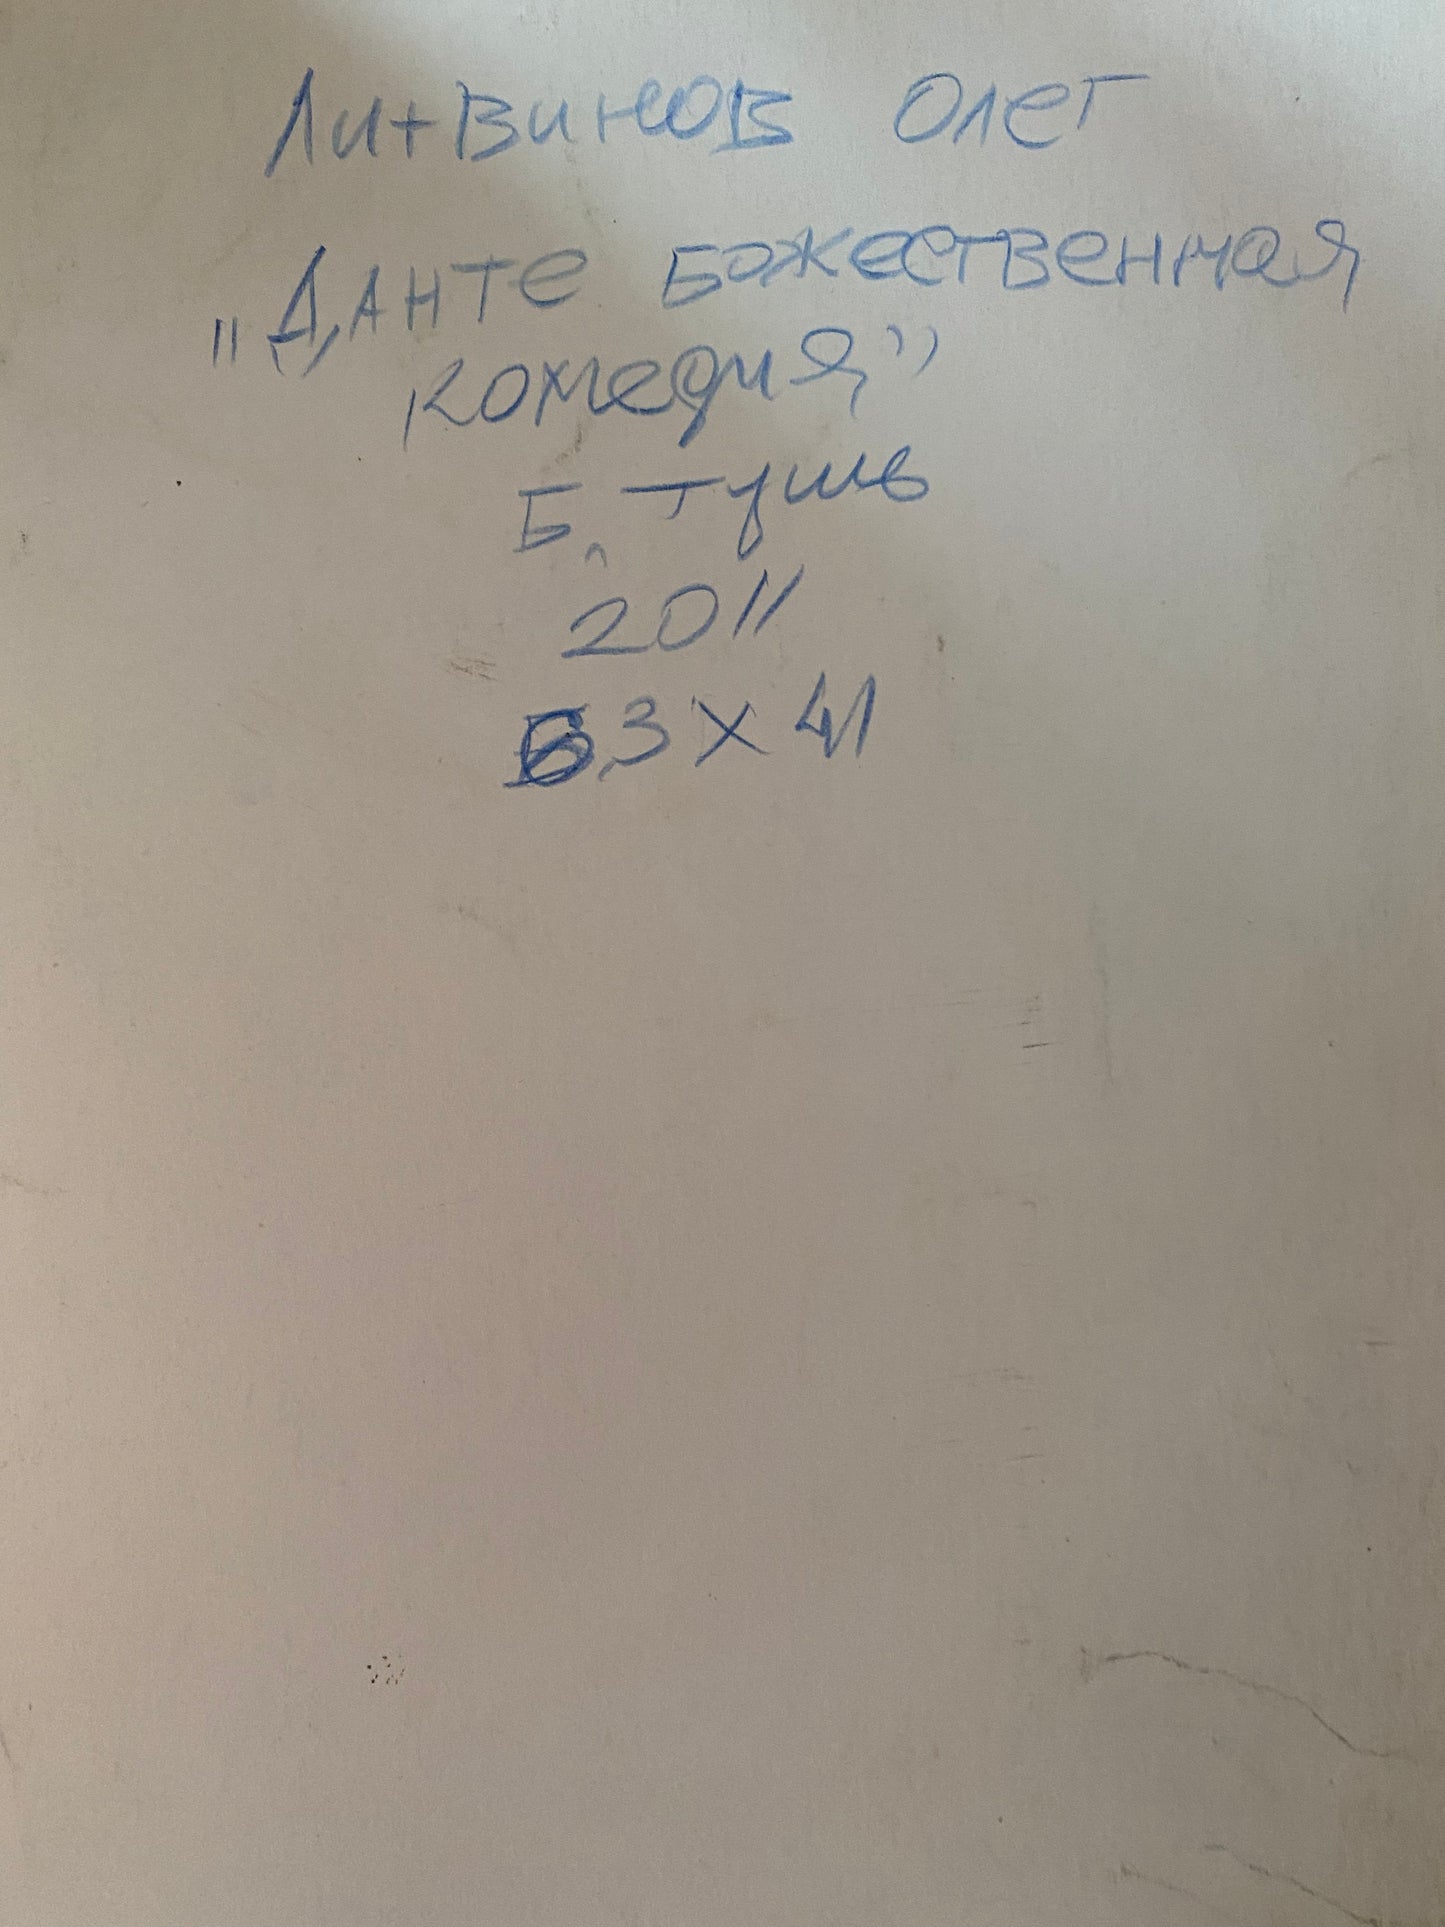 Литвинов Олег
"Данте Божественная
комедия"
Б, тушь
2011
х 41